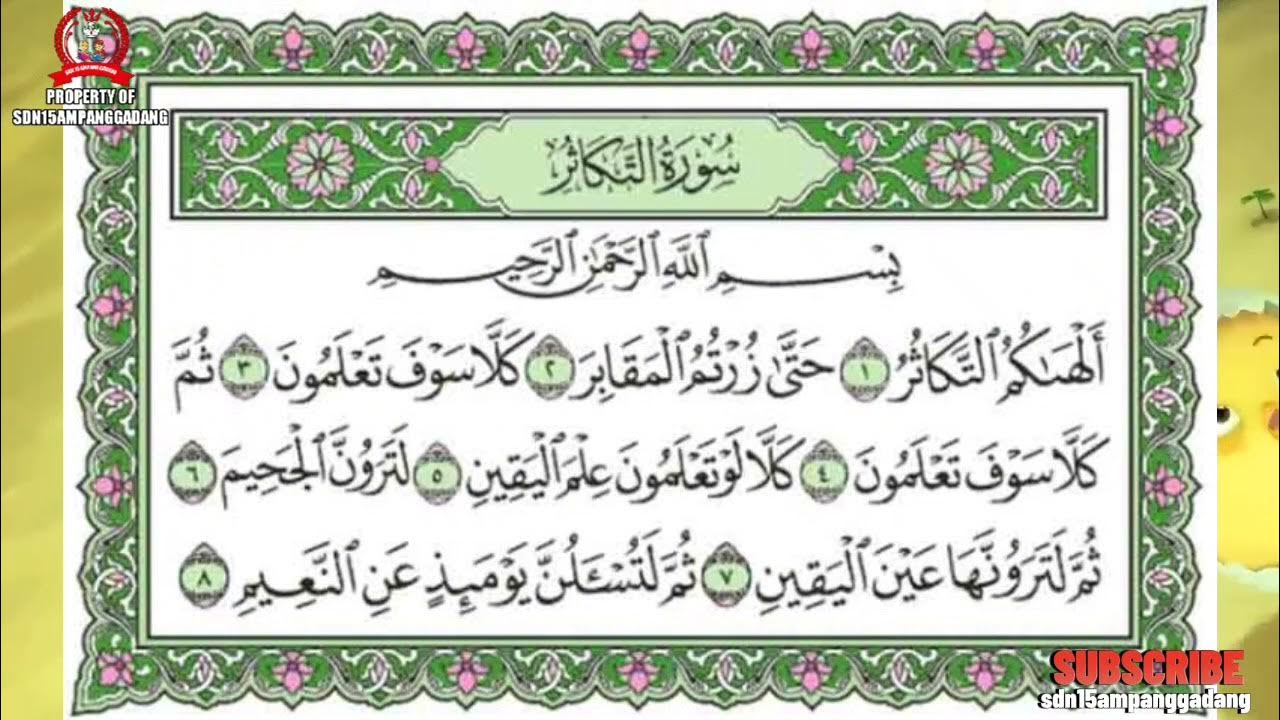 PROPERTY OF
SDN15AMPANGGADANG
سُورَةُ التَّكَاثُرِ
بِسْمِ ٱللَّهِ ٱلرَّحْمَٰنِ ٱلرَّحِيمِ
أَلْهَىٰكُمُ ٱلتَّكَاثُرُ ١ حَتَّىٰ زُرْتُمُ ٱلْمَقَابِرَ ٢ كَلَّا سَوْفَ تَعْلَمُونَ ٣ ثُمَّ
كَلَّا سَوْفَ تَعْلَمُونَ ٤ كَلَّا لَوْ تَعْلَمُونَ عِلْمَ ٱلْيَقِينِ ٥ لَتَرَوُنَّ ٱلْجَحِيمَ ٦
ثُمَّ لَتَرَوُنَّهَا عَيْنَ ٱلْيَقِينِ ٧ ثُمَّ لَتُسْـَٔلُنَّ يَوْمَئِذٍ عَنِ ٱلنَّعِيمِ ٨
SUBSCRIBE
sdn15ampanggadang